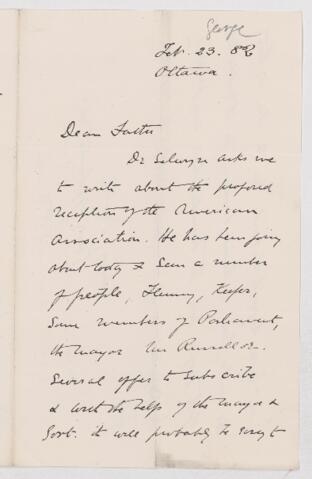 George
Feb. 23. 82
Ottawa.
Dear Father
Dr Selwyn asks me
to write about the proposed
reception of the American
Association. He has been going
about today & seen a number
of people, Fleming, Keefer,
Some members of Parliament,
the mayor Mr Russell &c.
Several offer to subscribe
& with the help of the mayor &
Govt. it will probably be easy to